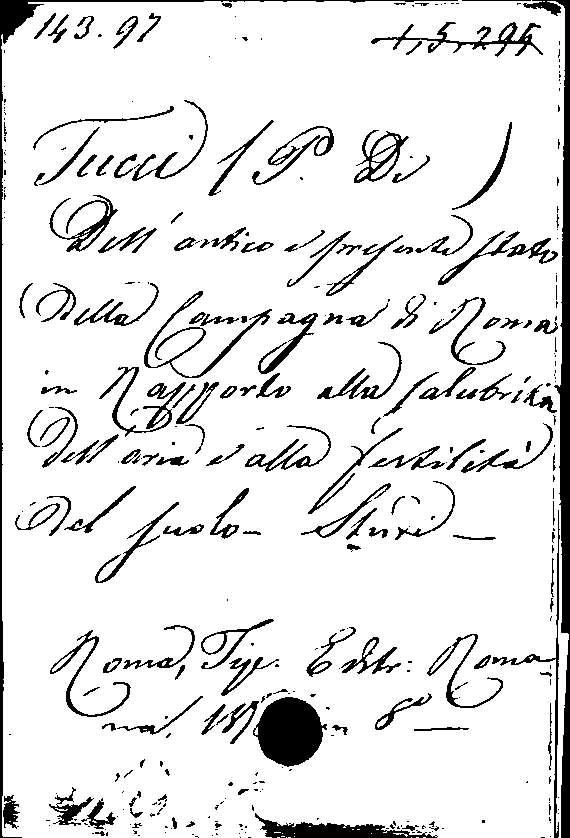 143.97
1,5,295
Tucci (P. Di)
Dell'antico e presente stato
della Campagna di Roma
in Rapporto alla salubrità
dell'aria e alla fertilità
del suolo - Studi -
Roma, Tip. Editr: Roma-
na, 18 in 8° -